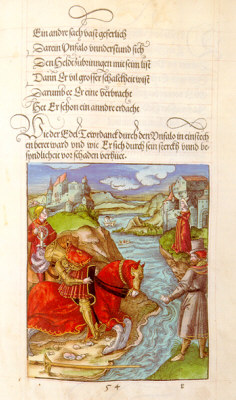 Ein andre sach vast geferlich
Darein Unfalo vnnderstund sich
Den Held zubringen mit seim list
Dann Er vil grosser schalckheit wist
Darumb er Eine verbracht
Het Er schon ein anndre erdacht
Wie der Edel Tewrdanck durch den Unfalo in ein stech
en beret ward vnd wie Er sich durch sein sterck vnd be
syndlichen vor schaden verhüet.
54
E